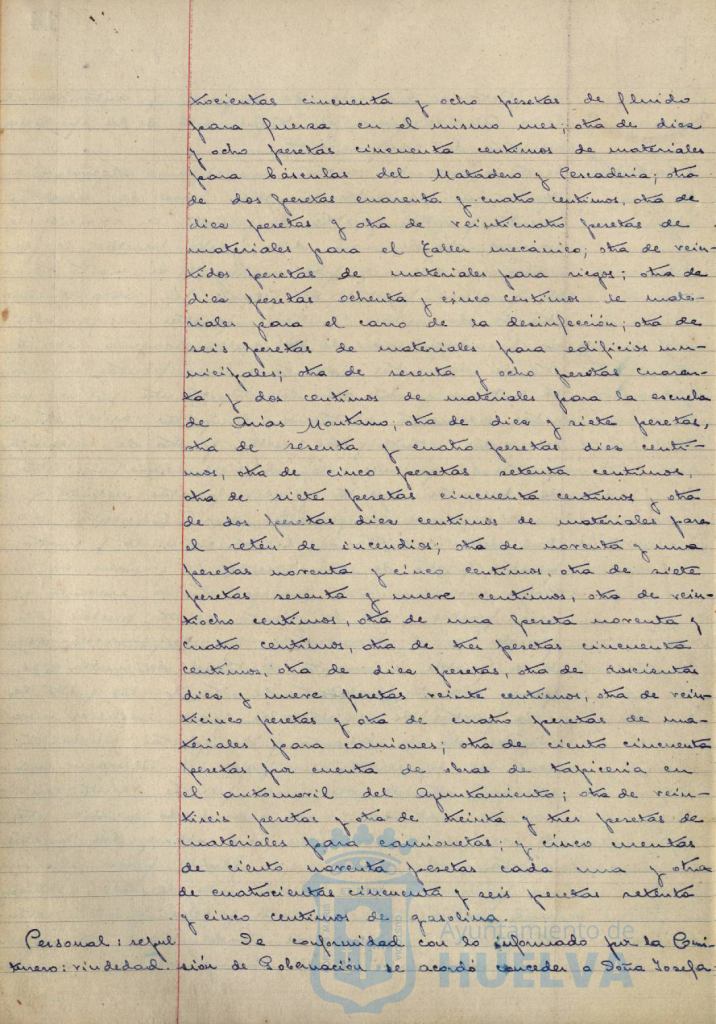 trocientas cincuenta y ocho pesetas de fluido
para fuerza en el mismo mes; otra de diez
y ocho pesetas cincuenta centimos de materiales
para básculas del Matadero y Pescaderia; otra
de dos pesetas cuarenta y cuatro centimos, otra de
diez pesetas y otra de veinticuatro pesetas de
materiales para el Taller mecánico; otra de vein-
tidos pesetas de materiales para riegos; otra de
diez pesetas ochenta y cinco centimos de mate-
riales para el carro de la desinfección; otra de
seis pesetas de materiales para edificios mu-
nicipales; otra de sesenta y ocho pesetas cuaren-
ta y dos centimos de materiales para la escuela
de Arias Montano; otra de diez y siete pesetas,
otra de sesenta y cuatro pesetas diez centi-
mos, otra de cinco pesetas setenta centimos,
otra de siete pesetas cincuenta centimos y otra
de dos pesetas diez centimos de materiales para
el retén de incendios; otra de noventa y una
pesetas noventa y cinco centimos, otra de siete
pesetas sesenta y nueve centimos, otra de vein-
tiocho centimos, otra de una peseta noventa y
cuatro centimos, otra de tres pesetas cincuenta
centimos, otra de diez pesetas, otra de doscientas
diez y nueve pesetas veinte centimos, otra de vein-
ticinco pesetas y otra de cuatro pesetas de ma-
teriales para camiones; otra de ciento cincuenta
pesetas por cuenta de obras de tapiceria en
el automovil del Ayuntamiento; otra de vein-
tiseis pesetas y otra de treinta y tres pesetas de
materiales para camionetas; y cinco cuentas
de ciento noventa pesetas cada una y otra
de cuatrocientas cincuenta y seis pesetas setenta
y cinco centimos de gasolina.
Personal: sepul
turero: viudedad.
De conformidad con lo informado por la Comi-
sión de Gobernación se acordó conceder a Doña Josefa
Ayuntamiento de
HUELVA